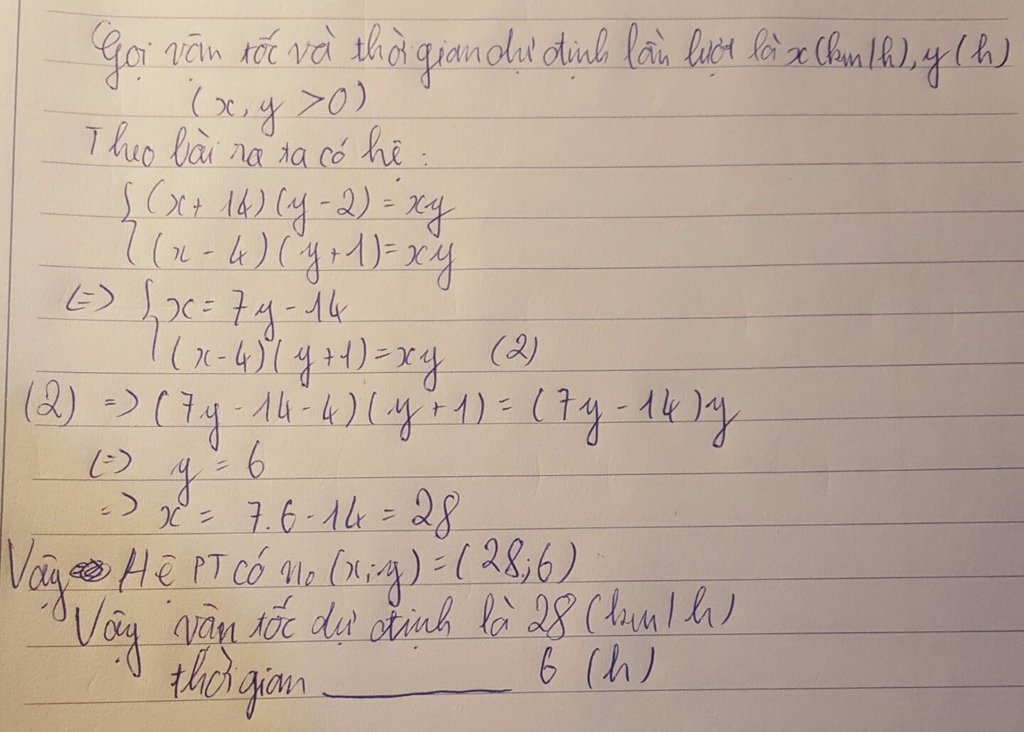 Gọi vận tốc và thời gian dự định lần lượt là x (km/h), y (h)
(x, y > 0)
Theo bài ra ta có hệ:
{ (x + 14)(y - 2) = xy
(x - 4)(y + 1) = xy
(=) { x = 7y - 14
(x - 4)(y + 1) = xy (2)
(2) => (7y - 14 - 4)(y + 1) = (7y - 14)y
(=) y = 6
=> x = 7.6 - 14 = 28
Vậy Hệ PT có n0 (x;y) = (28;6)
Vậy vận tốc dự định là 28 (km/h)
thời gian ________ 6 (h)